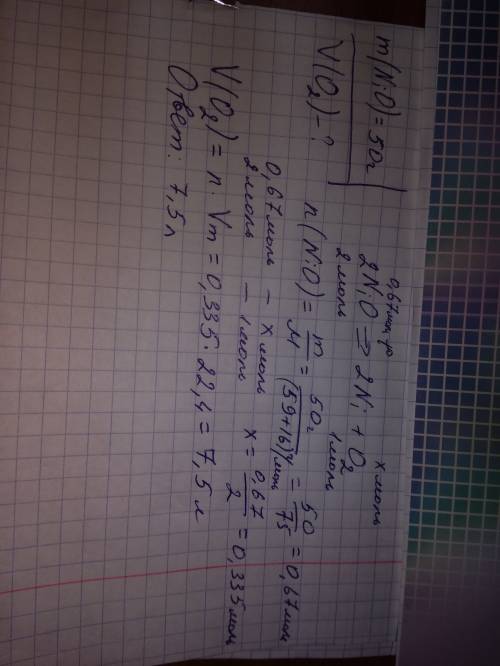 m(NiO)=50г
V(O₂)-?
0,67моль x моль
2NiO ⇒ 2Ni + O₂
2моль 1моль
n(NiO) = m/M = 50г/(59+16)г/моль = 50/75 = 0,67моль
0,67моль – x моль x = 0,67/2 = 0,335моль
2моль – 1моль
V(O₂) = n · Vm = 0,335 · 22,4 = 7,5 л
Ответ: 7,5л